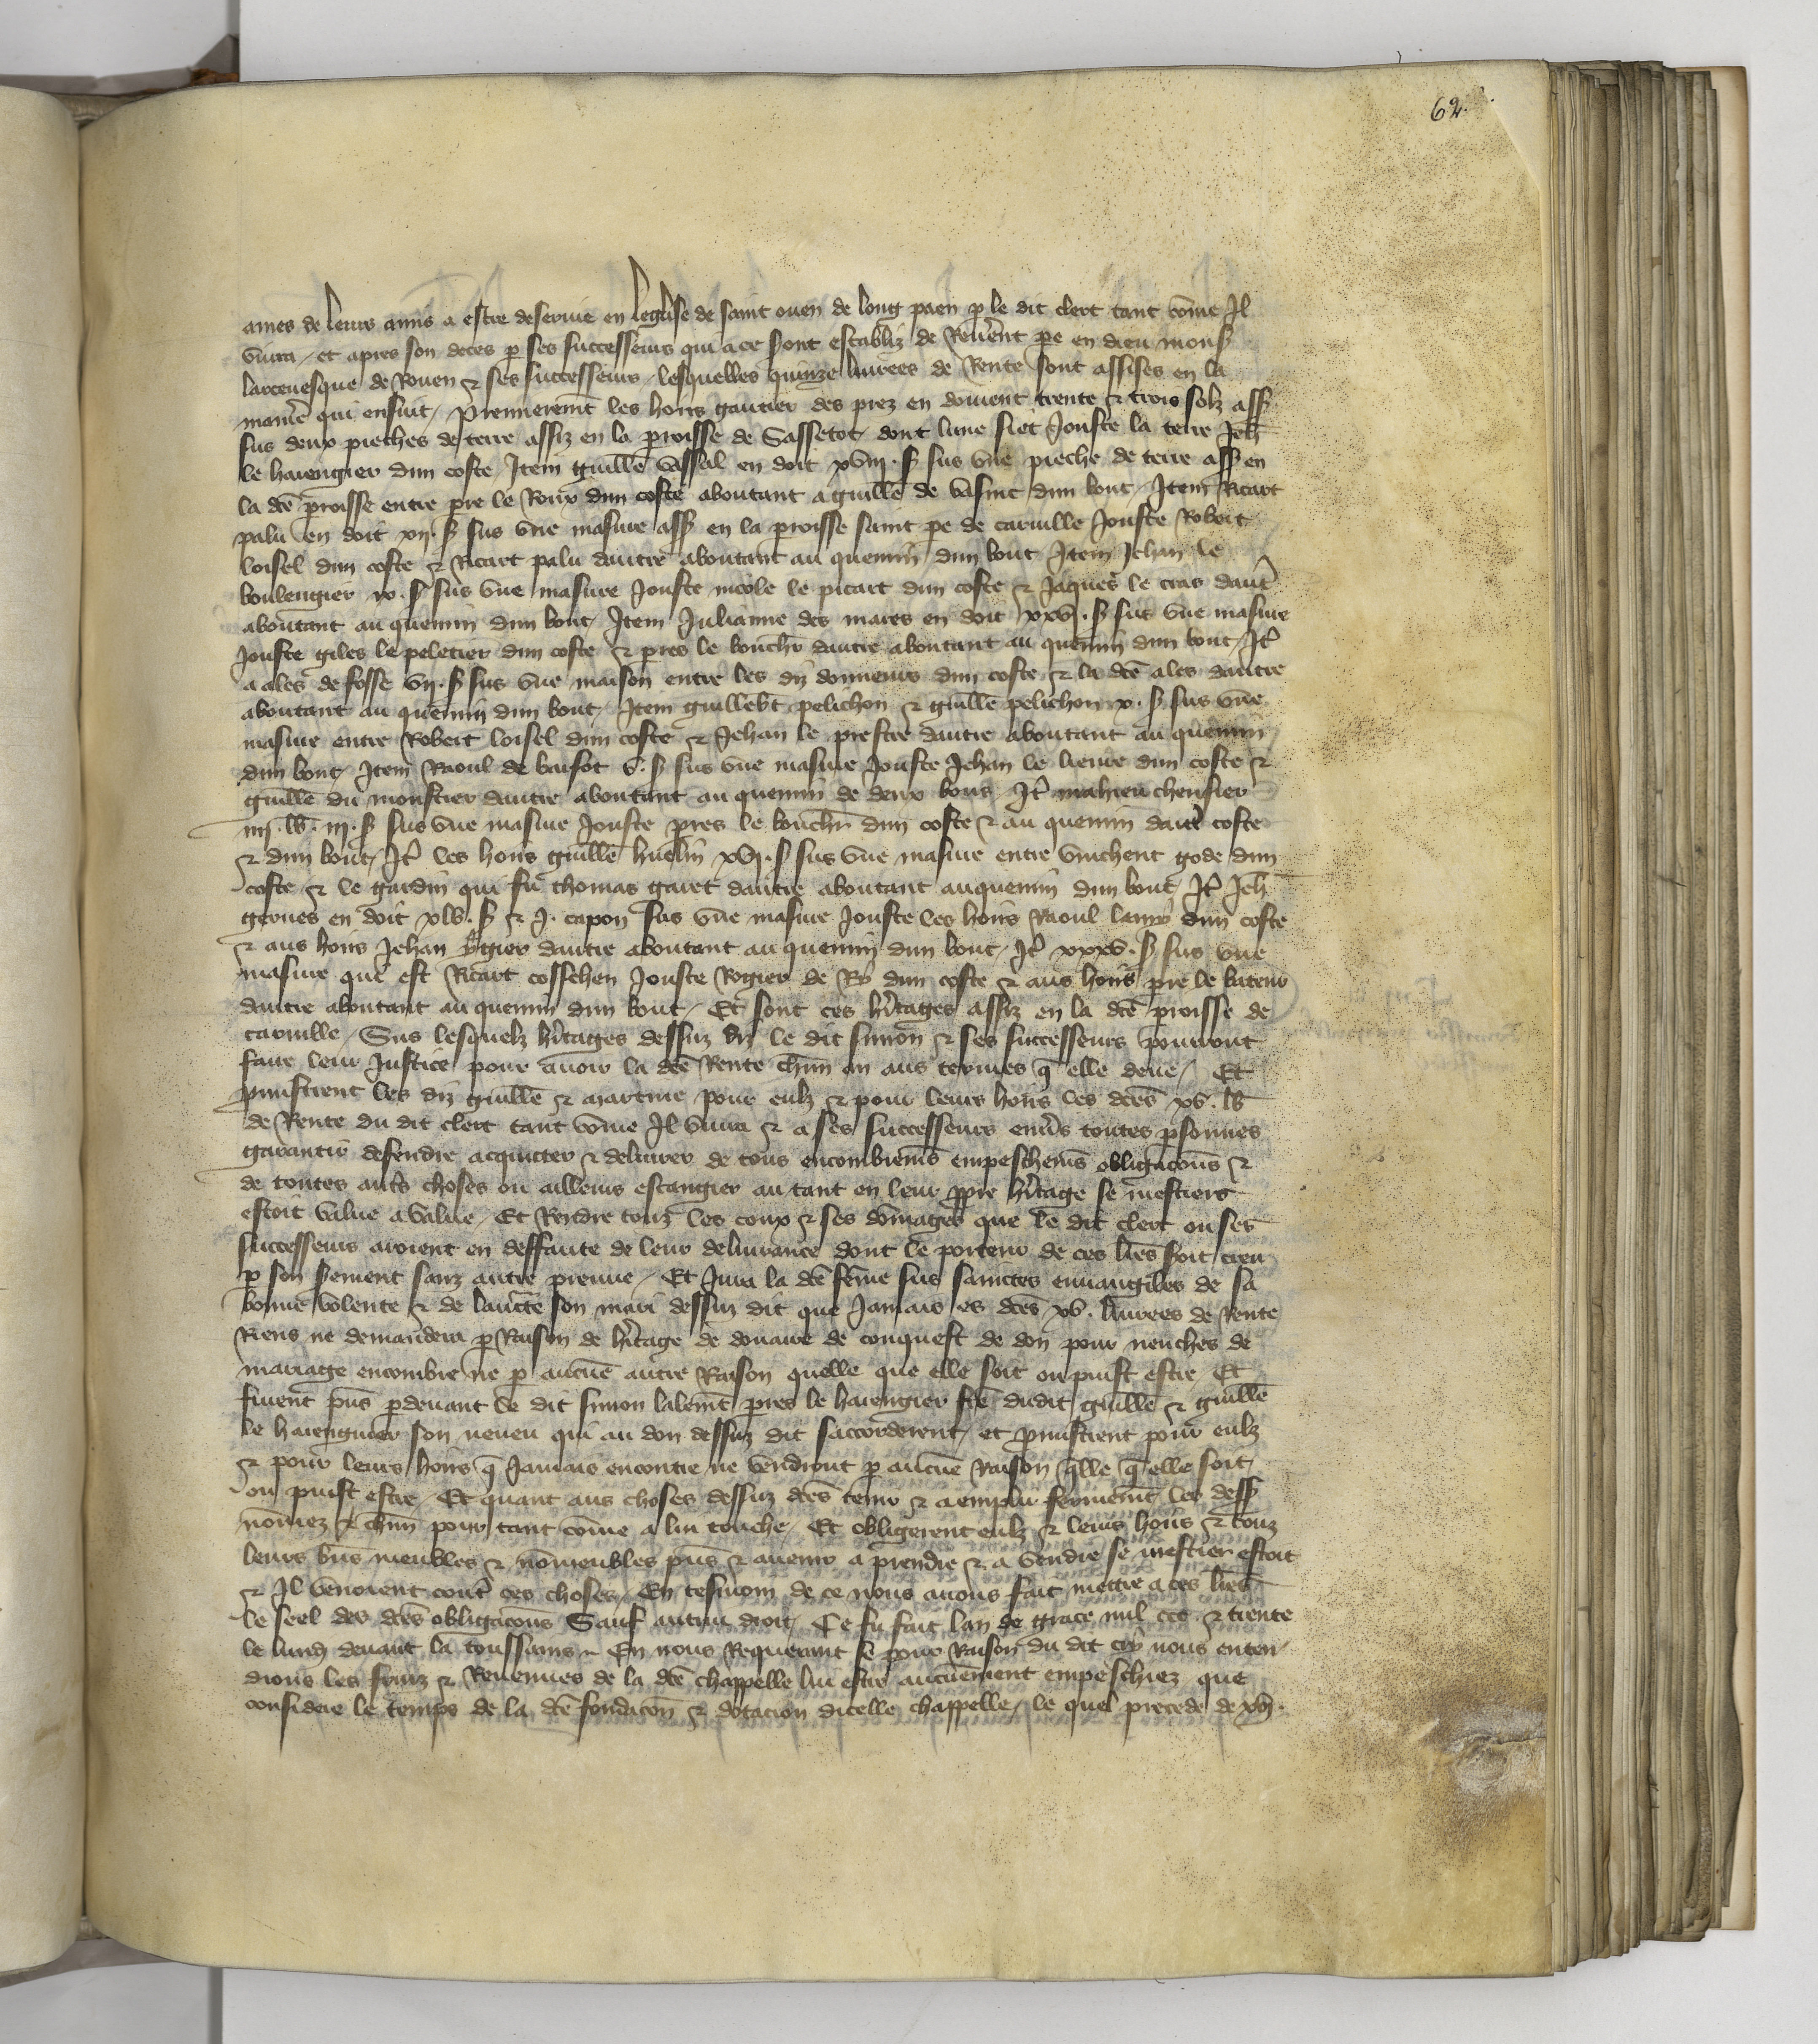 62.
ames de leurs amis a estre deservie en leglise de saint ouen de long paen p le dit clerc tant cōme Il
vivra / et apres son deces p ses successeurs qui a ce sont establiz de Reuerēt pe en dieu monsʳ
larcevesque de Rouen & ses successeurs / lesquelles quinze livrees de Rente sont assises en la
maniē qui ensuit / Premieremt les hoirs gautier des prez en doivent trente & trois solz ass
sus deux pieches de terre assiz en la proisse de Sassetot / dont lune siet Jouste la terre Jeh̄
le harengier dun coste / Item guillē vassal en doit xviii. s̄ sus vne pieche de terre ass en
la dcē proisse entre pre le Roux dun coste aboutant a guillē de vasint dun bout / Item Ricart
palu en doit xii. s̄ sus vne masure ass en la proisse saint pe de carville Jouste Robert
loisel dun coste & Ricart palu dautre aboutant au quemin dun bout Item Jehan le
boulengier x. s̄ sus vne masure Jouste nicole le picart dun coste & Jaques le cras dautr̄
aboutant au quemin dun bout / Item Julianne des mares en doit xxvi. s̄ sus vne masure
Jouste giles le peletier dun coste & pres le bouchr̄ dautre aboutant au quemin dun bout / Itē
a ales de fosse vii. s̄ sus vne maison entre les diz donneurs dun coste & la dcē ales dautre
aboutant au quemin dun bout / Item guillebt̄ pelichon & guillē pelichon x. s̄ sus vne
masure entre Robert loisel dun coste & Jehan le prestre dautre aboutant au quemin
dun bout / Item Raoul de baisot v. s̄ sus vne masure Jouste Jehan le lievre dun coste &
guillē du moustier dautre aboutant au quemin de deux bous Itē mahieu cheusier
iiii. lb. iii. s̄ sus vne masure Jouste pres le bouchr̄ dun coste & au quemin dautr̄ coste
& dun bout / Itē les hoirs guillē huelin xvi. s̄ sus vne masure entre vinchent gode dun
coste & le gardin qui fu thomas garet dautre aboutant au quemin dun bout Itē Jeh̄
gernes en doit xlv. s̄ & J. capon sus vne masure Jouste les hoirs Raoul dun coste
& aus hoirs Jehan dautre aboutant au quemin dun bout / Itē xxxv. s̄ sus vne
masure qui est Ricart cossehen Jouste Rogier de Ry dun coste & aus hoirs pre le bateur
dautre aboutant au quemin dun bout / Et sont ces hr̄tages assiz en la dcē proisse de
carville / Sus lesquelz hr̄tages dessuz diz le dit simon & ses successeurs pourront
faire leur Justice pour avoir la dcē Rente ch̄un an aus termes q̄ elle deue / Et
pmistrent les diz guillē & martine pour eulz & pour leurs hoirs les dcēs xv. lb
de Rente du dit clerc tant cōme Il vivra & a ses successeurs enūs toutes psonnes
garantir defendre acquicter & delivrer de tous encombremēs empeschemēs obligacōns &
de toutes autr̄s choses ou ailleurs eschangier au tant en leur ppre hr̄tage se mestiers
estoit value a value / Et Rendre touz les coux & ses dōmages que le dit clerc ou ses
successeurs aroient en deffaute de leur delivrance dont le porteur de ces lrēs soit creu
p son serement sanz autre preuve / Et Jura la dcē fēme sus sainctes ewangiles de sa
bonne volente & de lauctē son mari dessuz dit que Jamais es dcēs xv. livrees de Rente
Riens ne demandera p Raison de hr̄tage de douaire de conquest de don pour neuches de
mariage encombre ne p aucūe autre Raison quelle que elle soit ou puist estre Et
furent pn̄s pdevant le dit simon pres le harengier frē dudit guillē & guillē
le harengnier son neveu qui au don dessuz dit saccorderent / et pmistrent pour eulz
& pour leurs hoirs q̄ Jamais encontre ne vendront p aucūe Raison q̄lle q̄ elle soit
ou puist estre / Et quant aus choses dessuz dcēs tenir & aemplir fermemt les dess
nōmez & ch̄un pour tant cōme a lui touche / Et obligierent eulz & leurs hoirs & touz
leurs biēs meubles & nōmeubles pn̄s & avenir a prendre & a vendre se mestier estoit
& Il venoient contr̄ ces choses / En tesmoin de ce nous avons fait mettre a ces lrēs
le seel des dcēs obligacons Sauf autrui droit / Ce fu fait lan de grace mil ccc & trente
le lundi devant la toussains En nous Requerant se pour Raison du dit nous enten
dions les fruiz & Revenues de la dcē chappelle lui estre aucūement empeschiez que
considere le temps de la dcē fondacōn & dotacion dicelle chappelle / le quel precede de